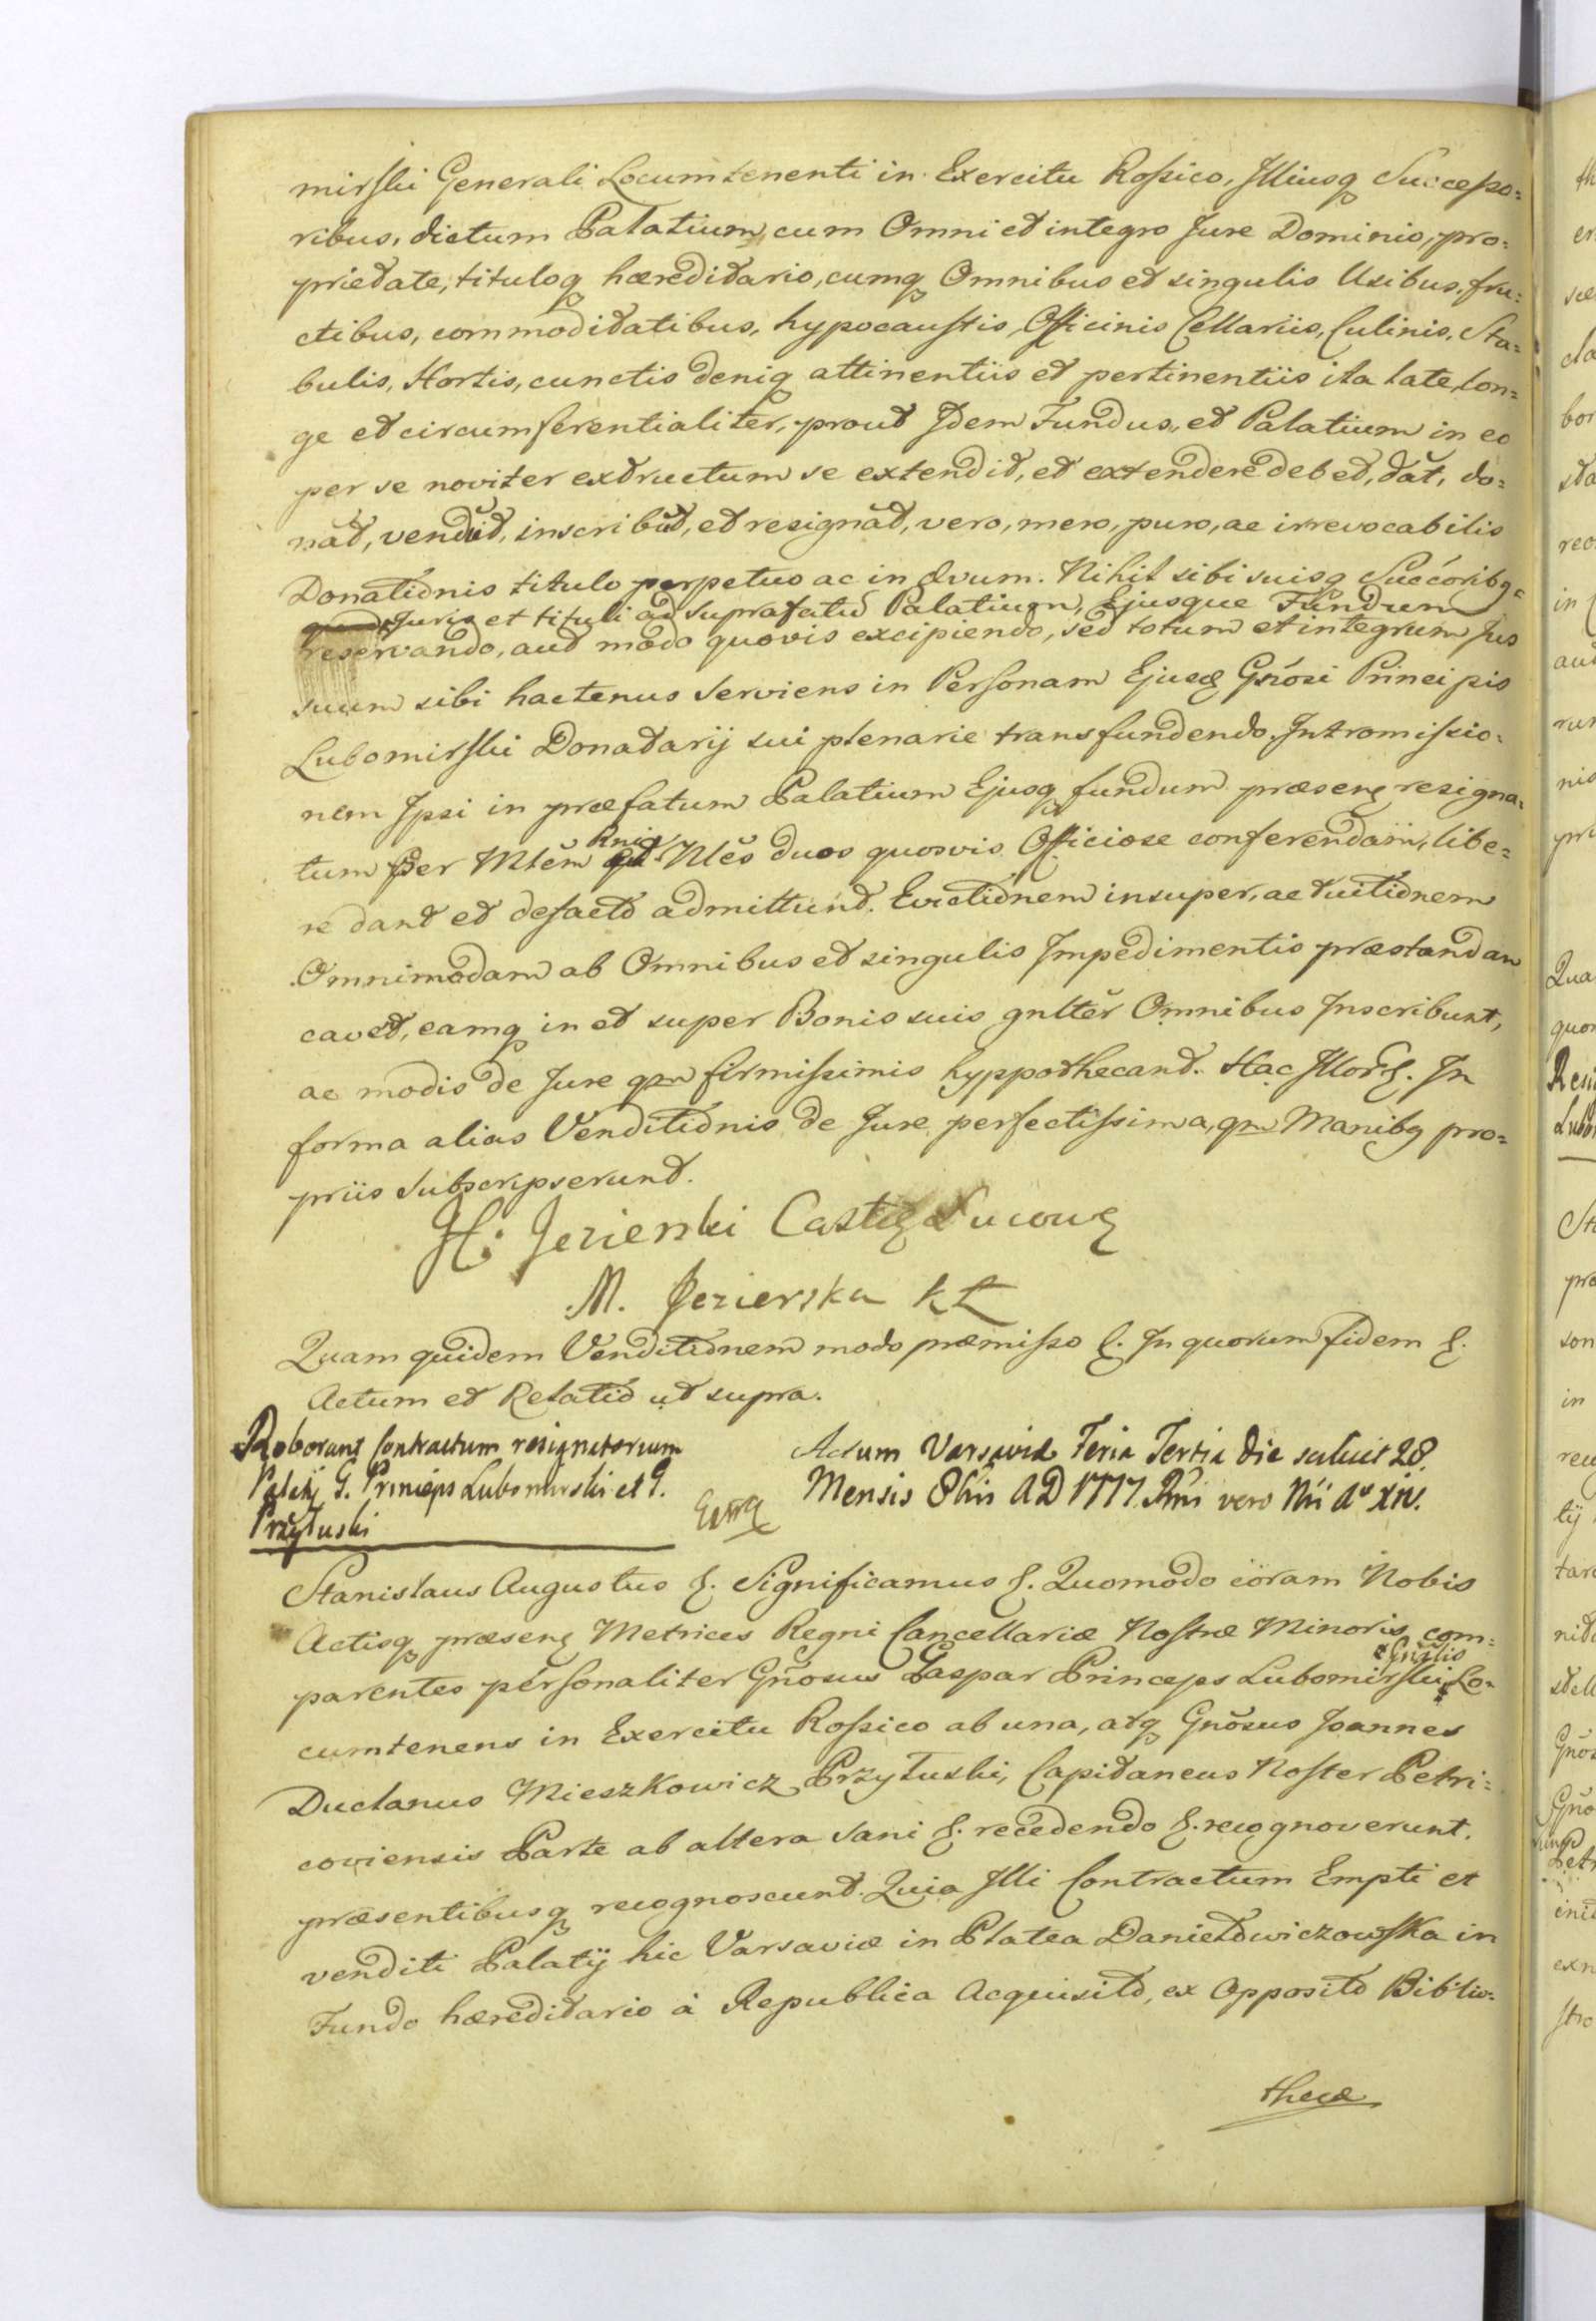 mirski Generali Locumtenenti in Exercitu Rossico, Illiusq Successo=
ribus, dictum Palatium, cum Omni et integro Jure Dominio, pro=
prietate, tituloq hæreditario, cumq Omnibus et singulis Usibus, fru=
ctibus, commoditatibus, hypocaustis, Officinis Cellariis, Culinis, Sta=
bulis, Hortis, cunctis deniq attinentiis et pertinentiis ita late, lon=
ge et circumferentialiter, prout Idem Fundus, et Palatium in eo
per se noviter extructum se extendit, et extendere debet, dat, do=
nat, vendit, inscribit, et resignat, vero, mero, puro, ac irrevocabilis
Donationis titulo perpetuo ac in ævum. Nihil sibi suisq Succoribq
Juris et tituli ad suprafatū Palatium, Ejusque Fundum
reservando, aut modo quovis excipiendo, sed totum et integrum Jus
suum sibi hactenus serviens in Personam Ejusd Gnōsi Principis
Lubomirski Donatarij sui plenarie transfundendo. Intromissio=
nem Ipsi in præfatum Palatium Ejusq fundum præsens resigna=
tum per Mlēm Rnig
et Nlēs duos quosvis Officiose conferendam, libe=
re dant et defacto admittunt. Evictionem insuper, ac tuitionem
Omnimodam ab Omnibus et singulis Impedimentis præstandam
cavet, eamq in et super Bonis suis gnltēr Omnibus Inscribunt,
ac modis de Jure qm firmissimis hyppothecant. Hac In
forma alias Venditionis de Jure perfectissima, qm Manibq pro=
priis subscripserunt.
H: Jezierski Castell Lucov
M. Jezierska KŁ
Quam quidem Venditionem modo præmisso &. In quorum fidem &.
Actum et Relatio ut supra.
Roborant Contractum resignatorium
Palatij G. Princeps Lubomirski et G.
Przyłuski
Actum Varsaviæ Feria Tertia die scilicet 28.
Mensis 8bris AD 1777. Rni vero Nri Ao XIV.
Stanislaus Augustus &. Significamus &. Quomodo coram Nobis
Actisq præsens Metrices Regni Cancellariæ Nostræ Minoris com=
parentes personaliter Gnōsus Gaspar Princeps Lubomirski, Gnrlis Lo=
cumtenens in Exercitu Rossico ab una, atq Gnōsus Joannes
Duclanus Mieszkowicz Przyłuski, Capitaneus Noster Petri=
coviensis Parte ab altera sani &. recedendo &. recognoverunt.
præsentibusq recognoscunt. Quia Illi Contractum Empti et
venditi Palatij hic Varsaviæ in Platea Daniełowiczowska in
Fundo hæreditario à Republica Acquisito, ex Opposito Biblio=
thecæ